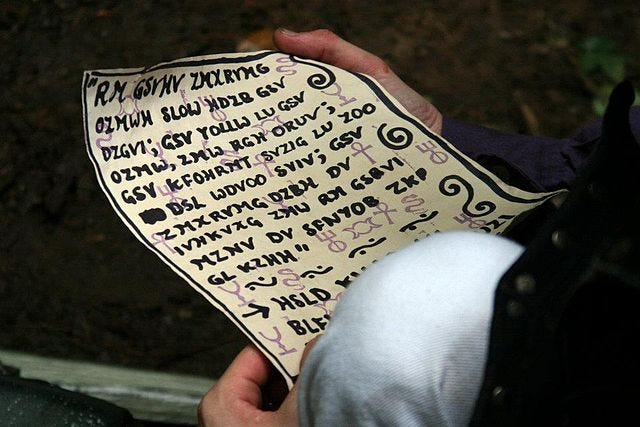 "RM GSVHV ZMXRVMG
OZMWH SLOW HDZB GSV
DZGVI; GSV YOLLW LU GSV
OZMW, ZMW RGH ORUV;
GSV KFOHRMT SVZIG LU ZOO
DSL WDVOO SVIV; GSV
ZMXRVMG DZBH DV
VHKVXG ZMW RM GSRVI
MZNV DV SFNYOB ZKP
GL KZHH"
HSLD